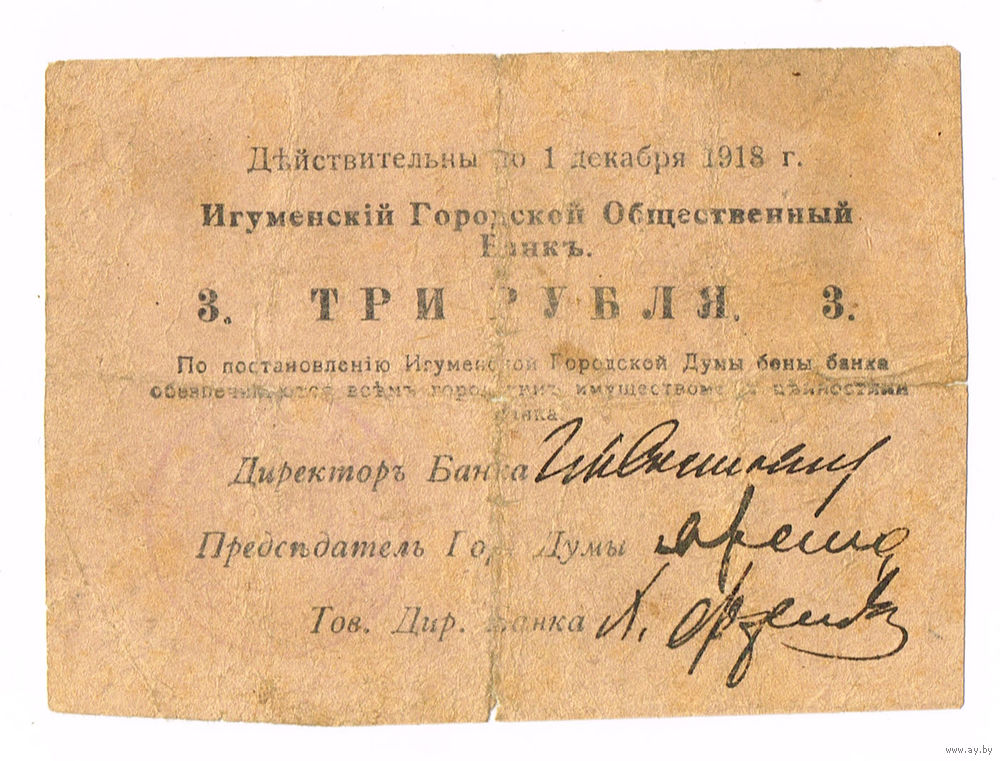 Дѣйствительны до 1 декабря 1918 г.
Игуменскій Городской Общественный
Банкъ.
3. ТРИ РУБЛЯ. 3.
По постановленію Игуменской Городской Думы боны банка
обезпечиваются всѣмъ городскимъ имуществомъ и цѣнностями
банка.
Директоръ Банка
Предсѣдатель Гор. Думы
Тов. Дир. Банка
www.ay.by